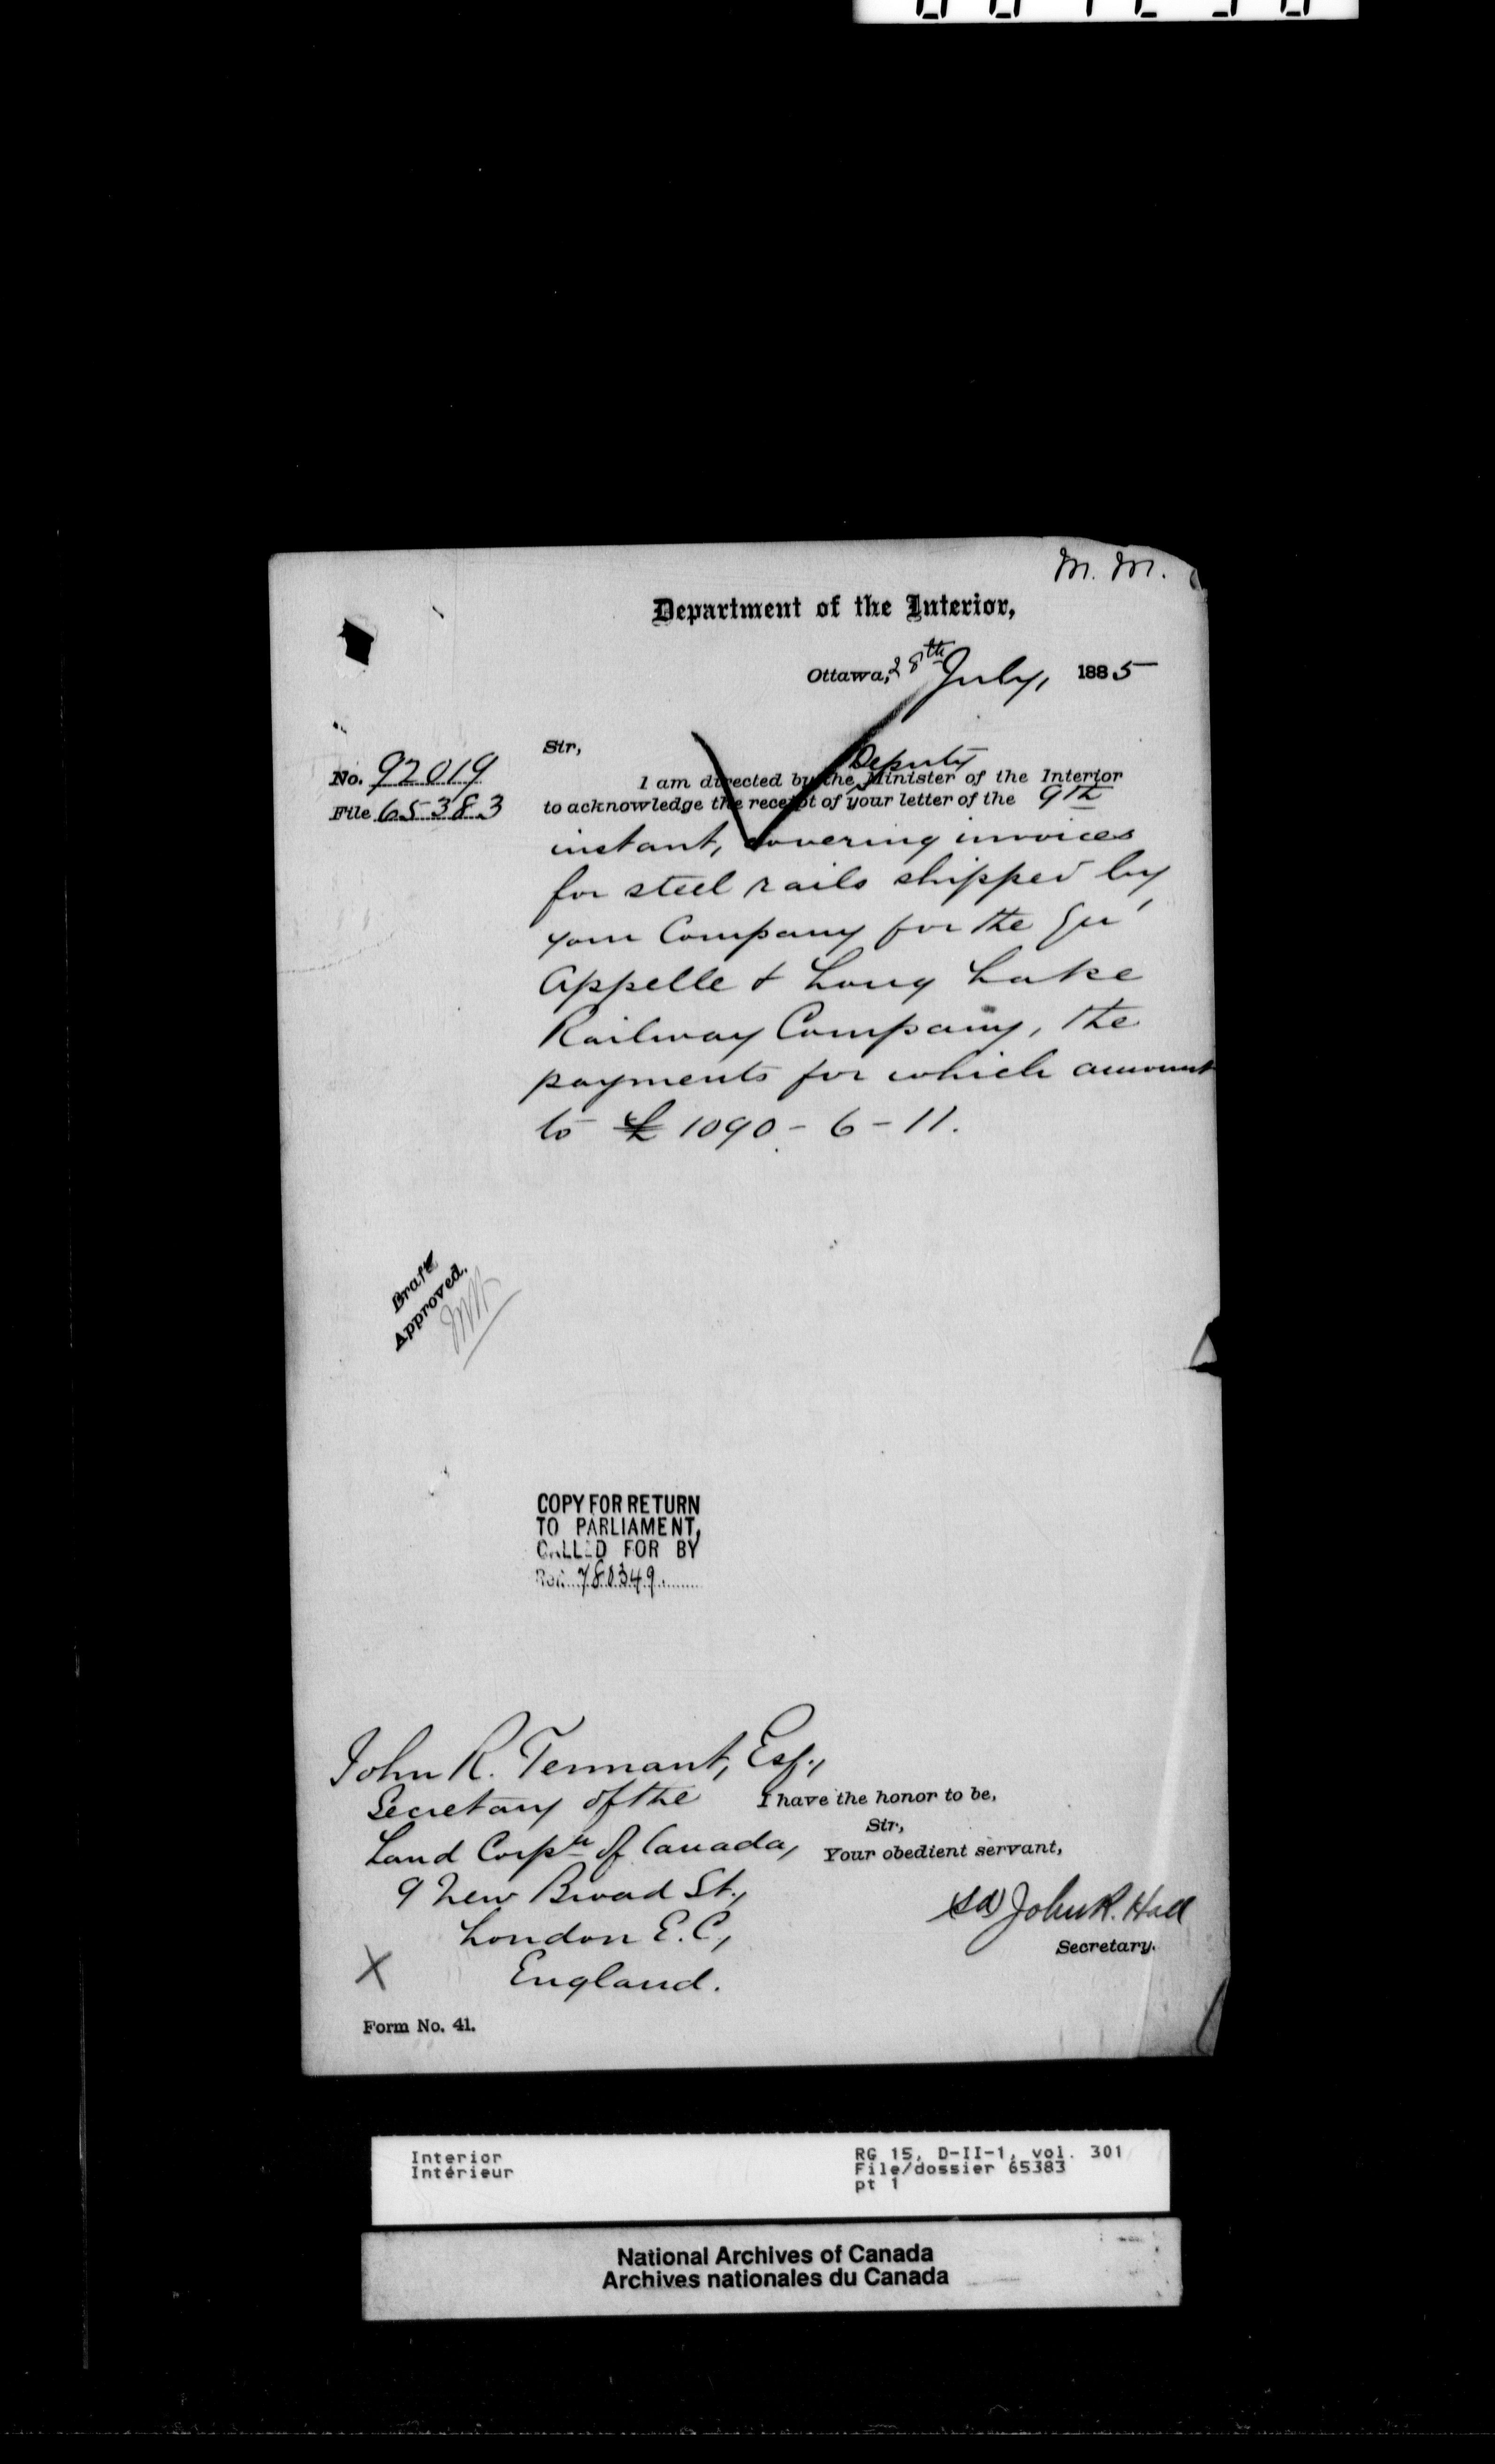 M. M.
Department of the Interior,
Ottawa, 28th July, 1885
Sir,
No. 92019
File 65383
Deputy
I am directed by the Minister of the Interior
to acknowledge the receipt of your letter of the 9th
instant, covering invoices
for steel rails shipped by
your Company for the Qu'
Appelle & Long Lake
Railway Company, the
payments for which amount
to £1090-6-11.
Draft
Approved.
COPY FOR RETURN
TO PARLIAMENT,
CALLED FOR BY
780349
John R. Tennant, Esq.,
Secretary of the
Land Corpn of Canada,
9 New Broad St.,
London E.C.,
England.
I have the honor to be,
Sir,
Your obedient servant,
(sd) John R. Hall
Secretary.
X
Form No. 41.
Interior
Intérieur
RG 15, D-II-1, vol. 301
File/dossier 65383
pt 1
National Archives of Canada
Archives nationales du Canada